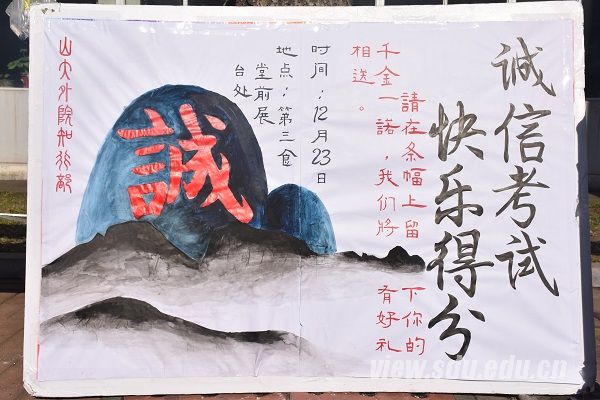 诚信考试
快乐得分
請在条幅上留下你的
千金一諾，我们將有好礼
相送。
时间：12月23日
地点：第三食
堂前展
台处
誠
山大外院知行部
view.sdu.edu.cn